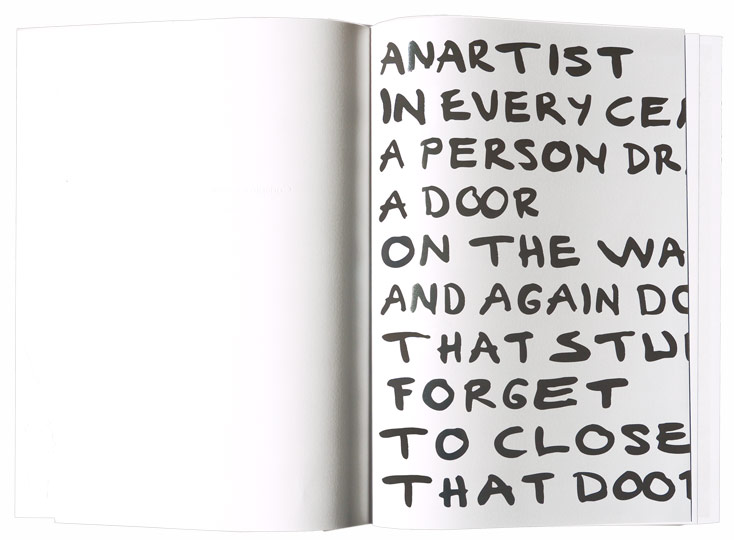 ANARTIST
IN EVERY CE
A PERSON DR
A DOOR
ON THE WA
AND AGAIN DO
THAT STU
FORGET
TO CLOSE
THAT DOO